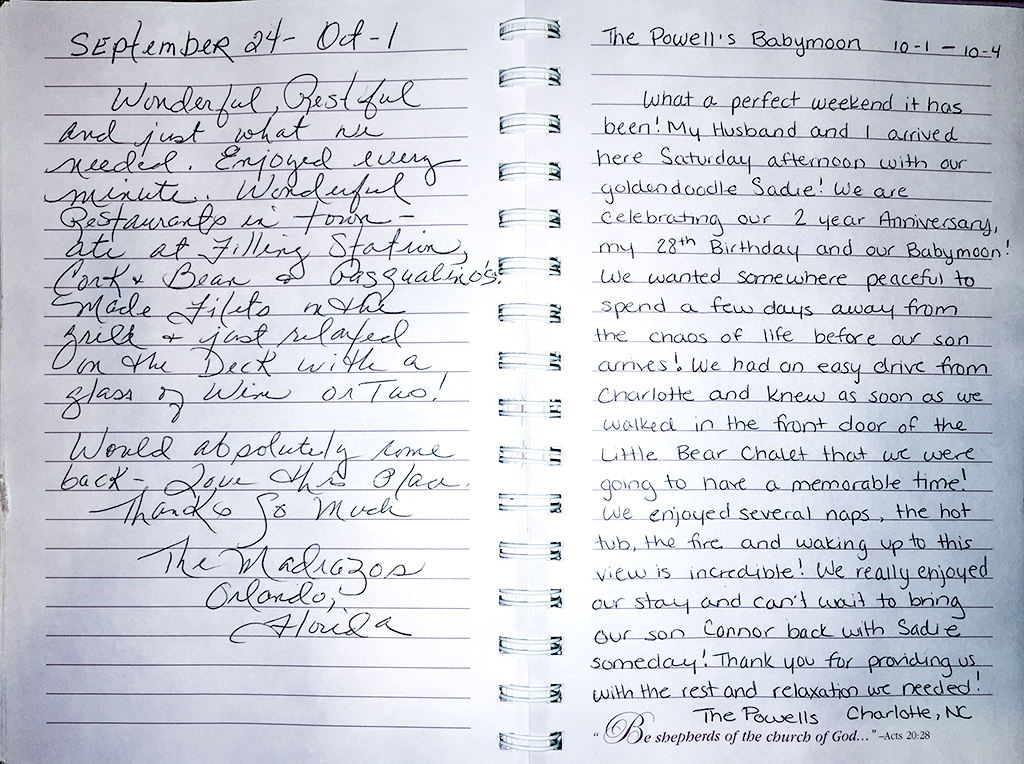 September 24- Oct-1
Wonderful, Restful
and just what we
needed. Enjoyed every
minute. Wonderful
Restaurants in town -
ate at Filling Station,
Cork & Bean & Pasqualino's.
Made Filets on the
grill & just relaxed
on the Deck with a
glass of Wine or Two!
Would absolutely come
back - Love this Place.
Thanks So Much
The Madrazos
Orlando,
Florida
The Powell's Babymoon 10-1 - 10-4
What a perfect weekend it has
been! My Husband and I arrived
here Saturday afternoon with our
goldendoodle Sadie! We are
celebrating our 2 year Anniversary,
my 28th Birthday and our Babymoon!
We wanted somewhere peaceful to
spend a few days away from
the chaos of life before our son
arrives! We had an easy drive from
Charlotte and knew as soon as we
walked in the front door of the
Little Bear Chalet that we were
going to have a memorable time!
We enjoyed several naps, the hot
tub, the fire and waking up to this
view is incredible! We really enjoyed
our stay and can't wait to bring
our son Connor back with Sadie
someday! Thank you for providing us
with the rest and relaxation we needed!
The Powells Charlotte, NC
"Be shepherds of the church of God..." –Acts 20:28